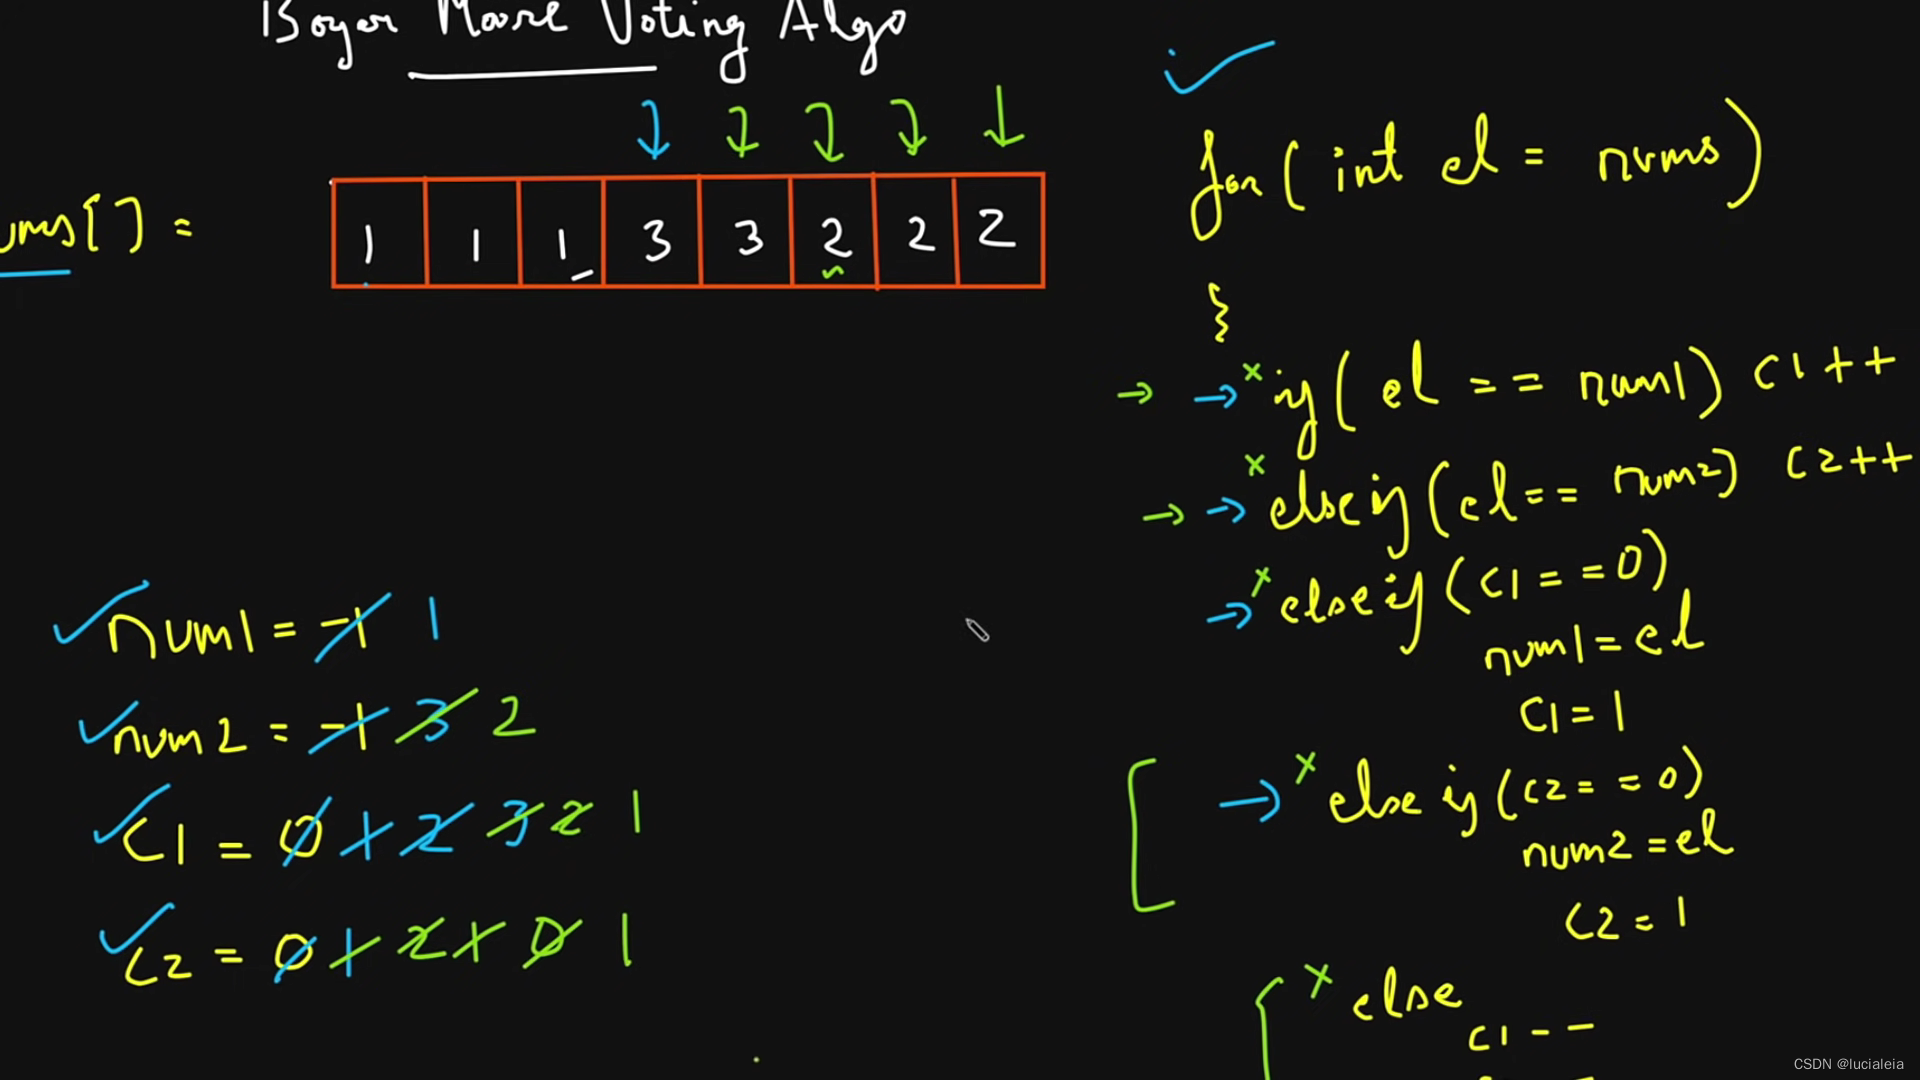 Boyer Moore Voting Algo
nums[] =
1 1 1 3 3 2 2 2
num1 = -1 1
num2 = -1 3 2
C1 = 0 1 2 3 2 1
C2 = 0 1 2 1 0 1
for( int el = nums)
}
if( el == num1) C1++
else if( el == num2) C2++
else if( C1 == 0)
num1 = el
C1 = 1
else if( C2 == 0)
num2 = el
C2 = 1
else
C1 --
CSDN @lucialeia